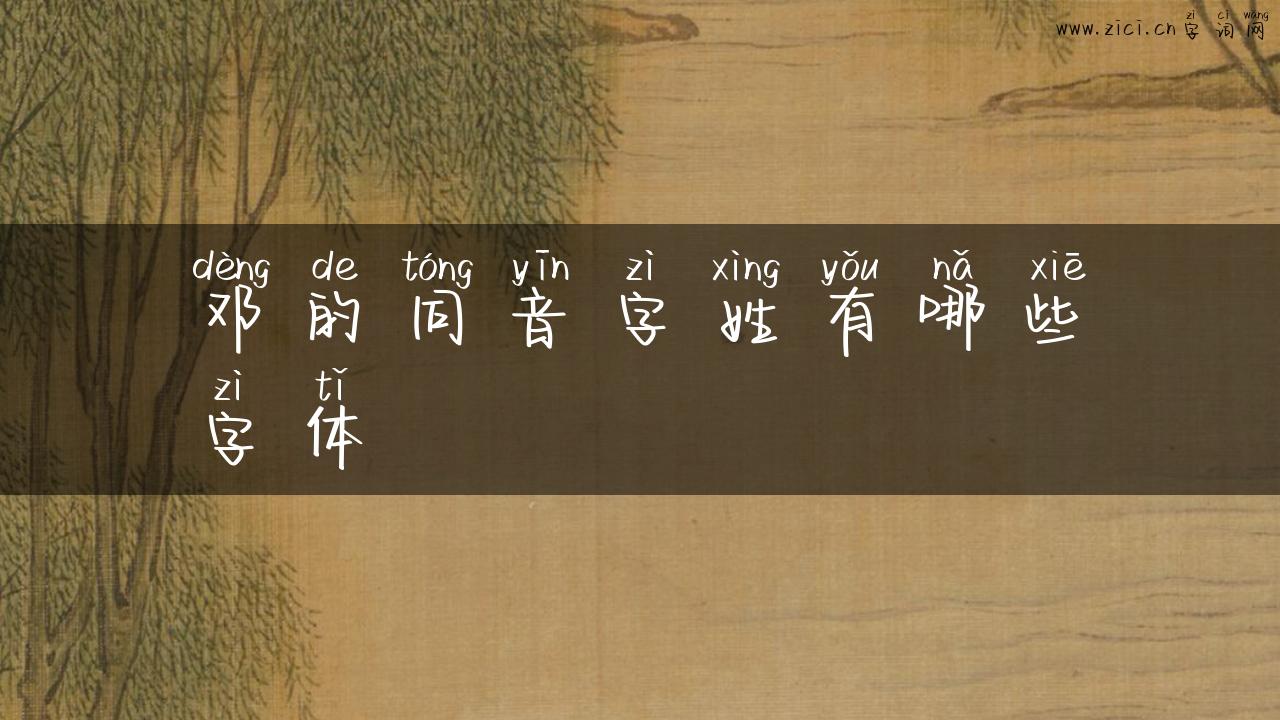 zì cí wǎng
www.zici.cn字词网
dèng de tóng yīn zì xìng yǒu nǎ xiē
邓的同音字姓有哪些
zì tǐ
字体